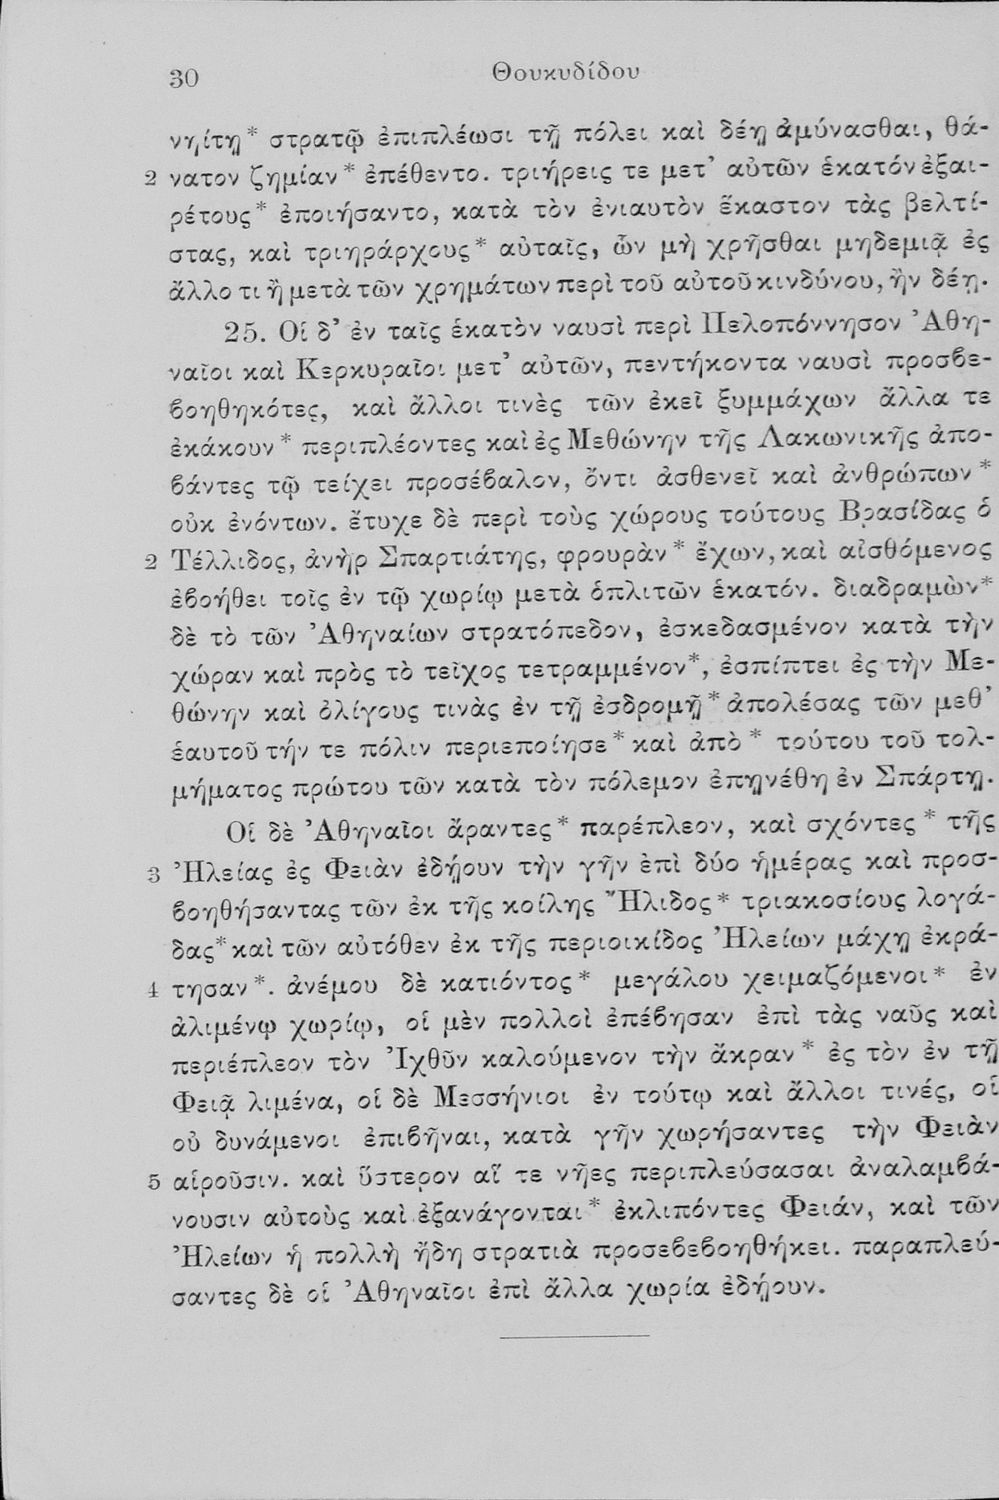 30 Θουκυδίδου
νηίτῃ* στρατῷ ἐπιπλέωσι τῇ πόλει καὶ δέῃ ἀμύνασθαι, θά-
2 νατον ζημίαν* ἐπέθεντο. τριήρεις τε μετ’ αὐτῶν ἑκατόν ἐξαι-
ρέτους* ἐποιήσαντο, κατὰ τὸν ἐνιαυτὸν ἕκαστον τὰς βελτί-
στας, καὶ τριηράρχους* αὐταῖς, ὧν μὴ χρῆσθαι μηδεμιᾷ ἐς
ἄλλο τι ἢ μετὰ τῶν χρημάτων περὶ τοῦ αὐτοῦ κινδύνου, ἢν δέῃ.
25. Οἱ δ’ ἐν ταῖς ἑκατὸν ναυσὶ περὶ Πελοπόννησον Ἀθη-
ναῖοι καὶ Κερκυραῖοι μετ’ αὐτῶν, πεντήκοντα ναυσὶ προσβε-
βοηθηκότες, καὶ ἄλλοι τινὲς τῶν ἐκεῖ ξυμμάχων ἄλλα τε
ἐκάκουν* περιπλέοντες καὶ ἐς Μεθώνην τῆς Λακωνικῆς ἀπο-
βάντες τῷ τείχει προσέβαλον, ὄντι ἀσθενεῖ καὶ ἀνθρώπων*
οὐκ ἐνόντων. ἔτυχε δὲ περὶ τοὺς χώρους τούτους Βρασίδας ὁ
2 Τέλλιδος, ἀνὴρ Σπαρτιάτης, φρουρὰν* ἔχων, καὶ αἰσθόμενος
ἐβοήθει τοῖς ἐν τῷ χωρίῳ μετὰ ὁπλιτῶν ἑκατόν. διαδραμὼν*
δὲ τὸ τῶν Ἀθηναίων στρατόπεδον, ἐσκεδασμένον κατὰ τὴν
χώραν καὶ πρὸς τὸ τεῖχος τετραμμένον*, ἐσπίπτει ἐς τὴν Με-
θώνην καὶ ὀλίγους τινὰς ἐν τῇ ἐσδρομῇ* ἀπολέσας τῶν μεθ’
ἑαυτοῦ τήν τε πόλιν περιεποίησε* καὶ ἀπὸ* τούτου τοῦ τολ-
μήματος πρώτου τῶν κατὰ τὸν πόλεμον ἐπῃνέθη ἐν Σπάρτῃ.
Οἱ δὲ Ἀθηναῖοι ἄραντες* παρέπλεον, καὶ σχόντες* τῆς
3 Ἠλείας ἐς Φειὰν ἐδῄουν τὴν γῆν ἐπὶ δύο ἡμέρας καὶ προσ-
βοηθήσαντας τῶν ἐκ τῆς κοίλης Ἤλιδος* τριακοσίους λογά-
δας* καὶ τῶν αὐτόθεν ἐκ τῆς περιοικίδος Ἠλείων μάχῃ ἐκρά-
4 τησαν*. ἀνέμου δὲ κατιόντος* μεγάλου χειμαζόμενοι* ἐν
ἀλιμένῳ χωρίῳ, οἱ μὲν πολλοὶ ἐπέβησαν ἐπὶ τὰς ναῦς καὶ
περιέπλεον τὸν Ἰχθῦν καλούμενον τὴν ἄκραν* ἐς τὸν ἐν τῇ
Φειᾷ λιμένα, οἱ δὲ Μεσσήνιοι ἐν τούτῳ καὶ ἄλλοι τινές, οἱ
οὐ δυνάμενοι ἐπιβῆναι, κατὰ γῆν χωρήσαντες τὴν Φειὰν
5 αἱροῦσιν. καὶ ὕστερον αἵ τε νῆες περιπλεύσασαι ἀναλαμβά-
νουσιν αὐτοὺς καὶ ἐξανάγονται* ἐκλιπόντες Φειάν, καὶ τῶν
Ἠλείων ἡ πολλὴ ἤδη στρατιὰ προσεβεβοηθήκει. παραπλεύ-
σαντες δὲ οἱ Ἀθηναῖοι ἐπὶ ἄλλα χωρία ἐδῄουν.